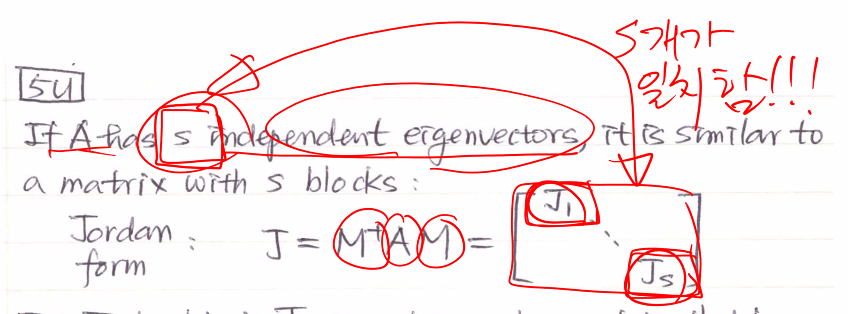 S개가
일치함!!!
5U
If A has s independent eigenvectors, it is similar to
a matrix with s blocks :
Jordan form : J = M⁻¹AM = [J₁ ⋱ Jₛ]